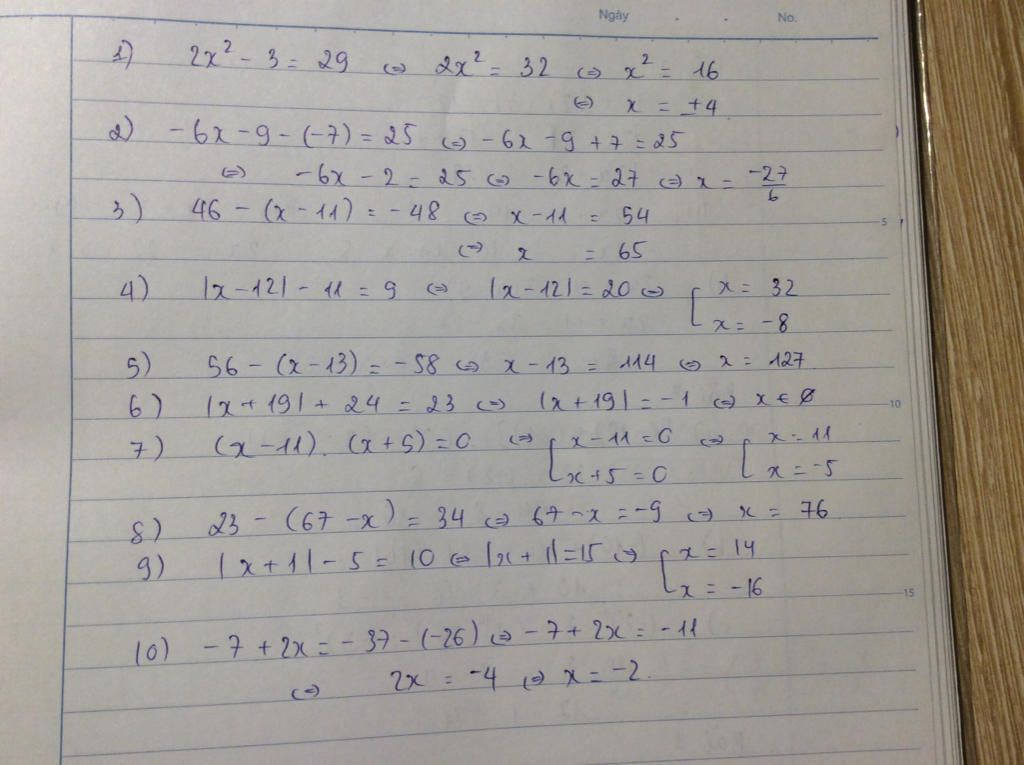 Ngày . . No.
1) 2x² - 3 = 29 ⇔ 2x² = 32 ⇔ x² = 16
⇔ x = ±4
2) -6x - 9 - (-7) = 25 ⇔ -6x - 9 + 7 = 25
⇔ -6x - 2 = 25 ⇔ -6x = 27 ⇔ x = -27/6
3) 46 - (x - 11) = -48 ⇔ x - 11 = 54
5
⇔ x = 65
4) |x - 12| - 11 = 9 ⇔ |x - 12| = 20 ⇔ [ x = 32
x = -8
5) 56 - (x - 13) = -58 ⇔ x - 13 = 114 ⇔ x = 127
6) |x + 19| + 24 = 23 ⇔ |x + 19| = -1 ⇔ x ∈ ∅
10
7) (x - 11) . (x + 5) = 0 ⇔ [ x - 11 = 0 ⇔ [ x = 11
x + 5 = 0 x = -5
8) 23 - (67 - x) = 34 ⇔ 67 - x = -9 ⇔ x = 76
9) |x + 1| - 5 = 10 ⇔ |x + 1| = 15 ⇔ [ x = 14
x = -16
15
10) -7 + 2x = -37 - (-26) ⇔ -7 + 2x = -11
⇔ 2x = -4 ⇔ x = -2.